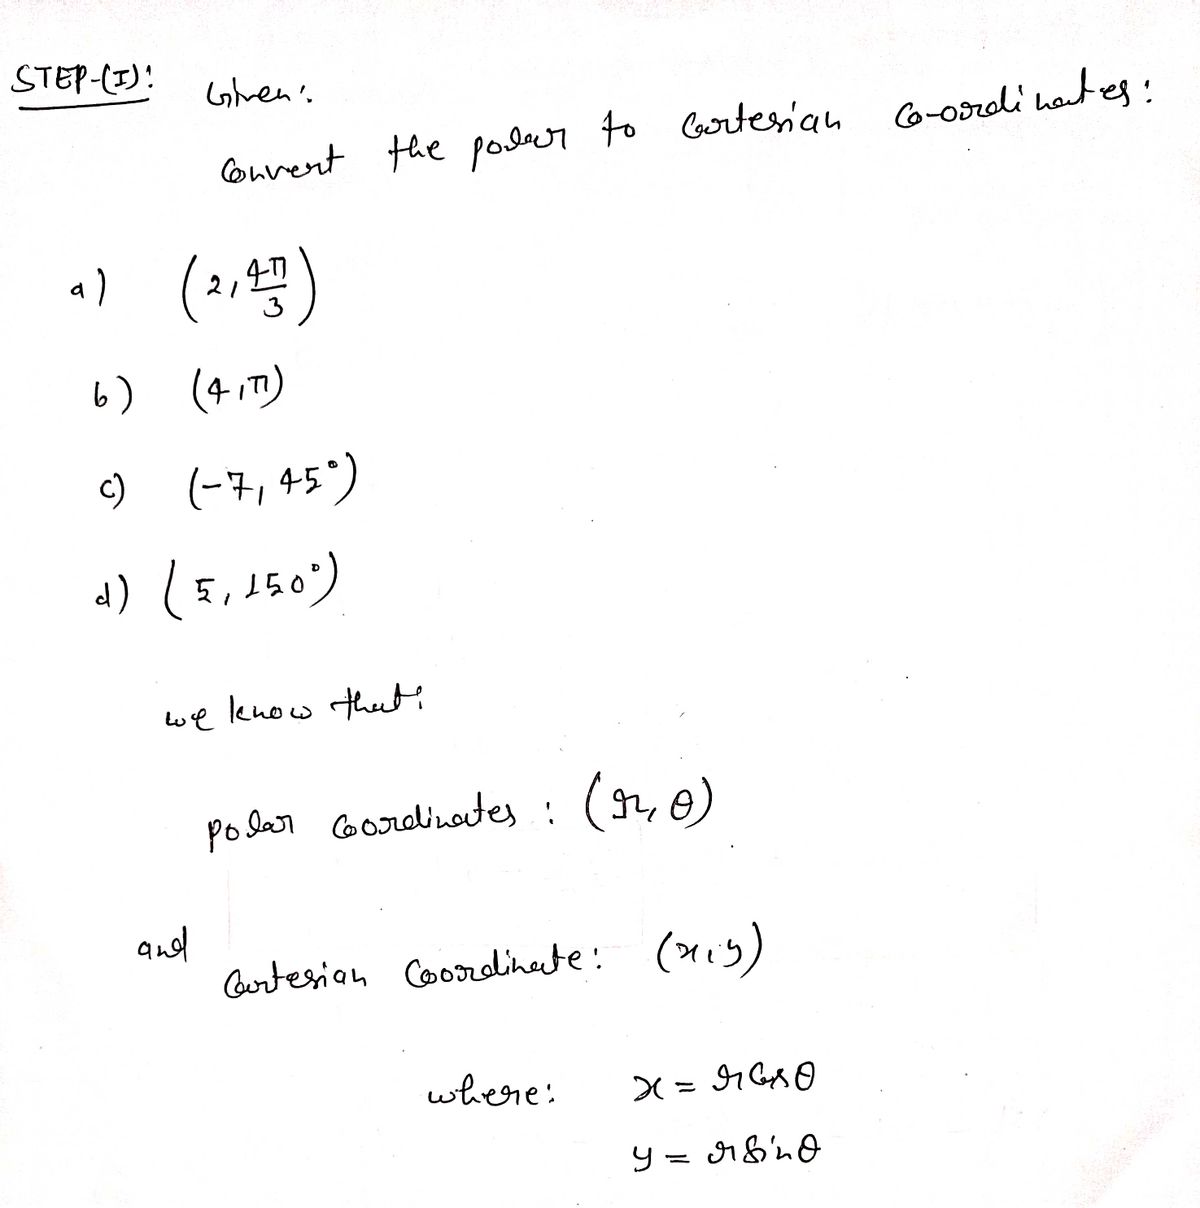 STEP-(I):
Given:
Convert the polar to Cartesian Co-ordinates:
a) (2, 4π/3)
b) (4, π)
c) (-7, 45°)
d) (5, 150°)
we know that:
polar Coordinates : (r, θ)
and
Cartesian Coordinate: (x, y)
where: x = r Cos θ
y = r Sin θ